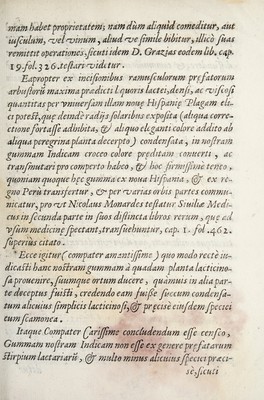 mam habet proprietatem; nam dùm aliquid comeditur, aut
iusculum, vel vinum, aliud ve simile bibitur, illicò suas
remittit operationes, sicuti idem D. Grazias eodem lib. cap.
19. fol. 326. testari viditur.
Eapropter ex incisionibus ramusculorum præfatorum
arbustorũ maxima prædicti Lquoris lactei, densi, ac viscosi
quantitas per vniuersam illam nouę Hispanię Plagam eli-
ci potest, quę deindè radijs solaribus exposita (aliqua corre-
ctione fortasse adhibita, & aliquo eleganti colore addito ab
aliqua peregrina planta decerpto) condensata, in nostram
gummam Indicam croceo colore præditam conuerti, ac
transmutari pro comperto habeo, & hoc firmissimè teneo,
quoniam quoque hęc gumma ex noua Hispania, & ex re-
gno Perù transfertur, & per varias orbis partes commu-
nicatur, pro vt Nicolaus Monardes testatur Siuiliæ Medi-
cus in secunda parte in suos distincta libros rerum, quę ad
vsum medicinę spectant, transuehuntur, cap. 1. fol. 462.
superius citato.
Ecce igitur (compater amantissime) quo modo rectè in-
dicasti hanc nostram gummam à quadam planta lacticino-
sa prouenire, suumque ortum ducere, quamuis in alia par-
te deceptus fuisti, credendo eam fuiſse ſuccum condensa-
tum alicuius simplicis lacticinosi, & præcisè eiusdem speciei
cum scamonea.
Itaque Compater Carissime concludendum esse censeo,
Gummam nostram Indicam non esse ex genere præfatarum
stirpium laetariarũ, & multo minus alicuius speciei præci-
sè, sicuti